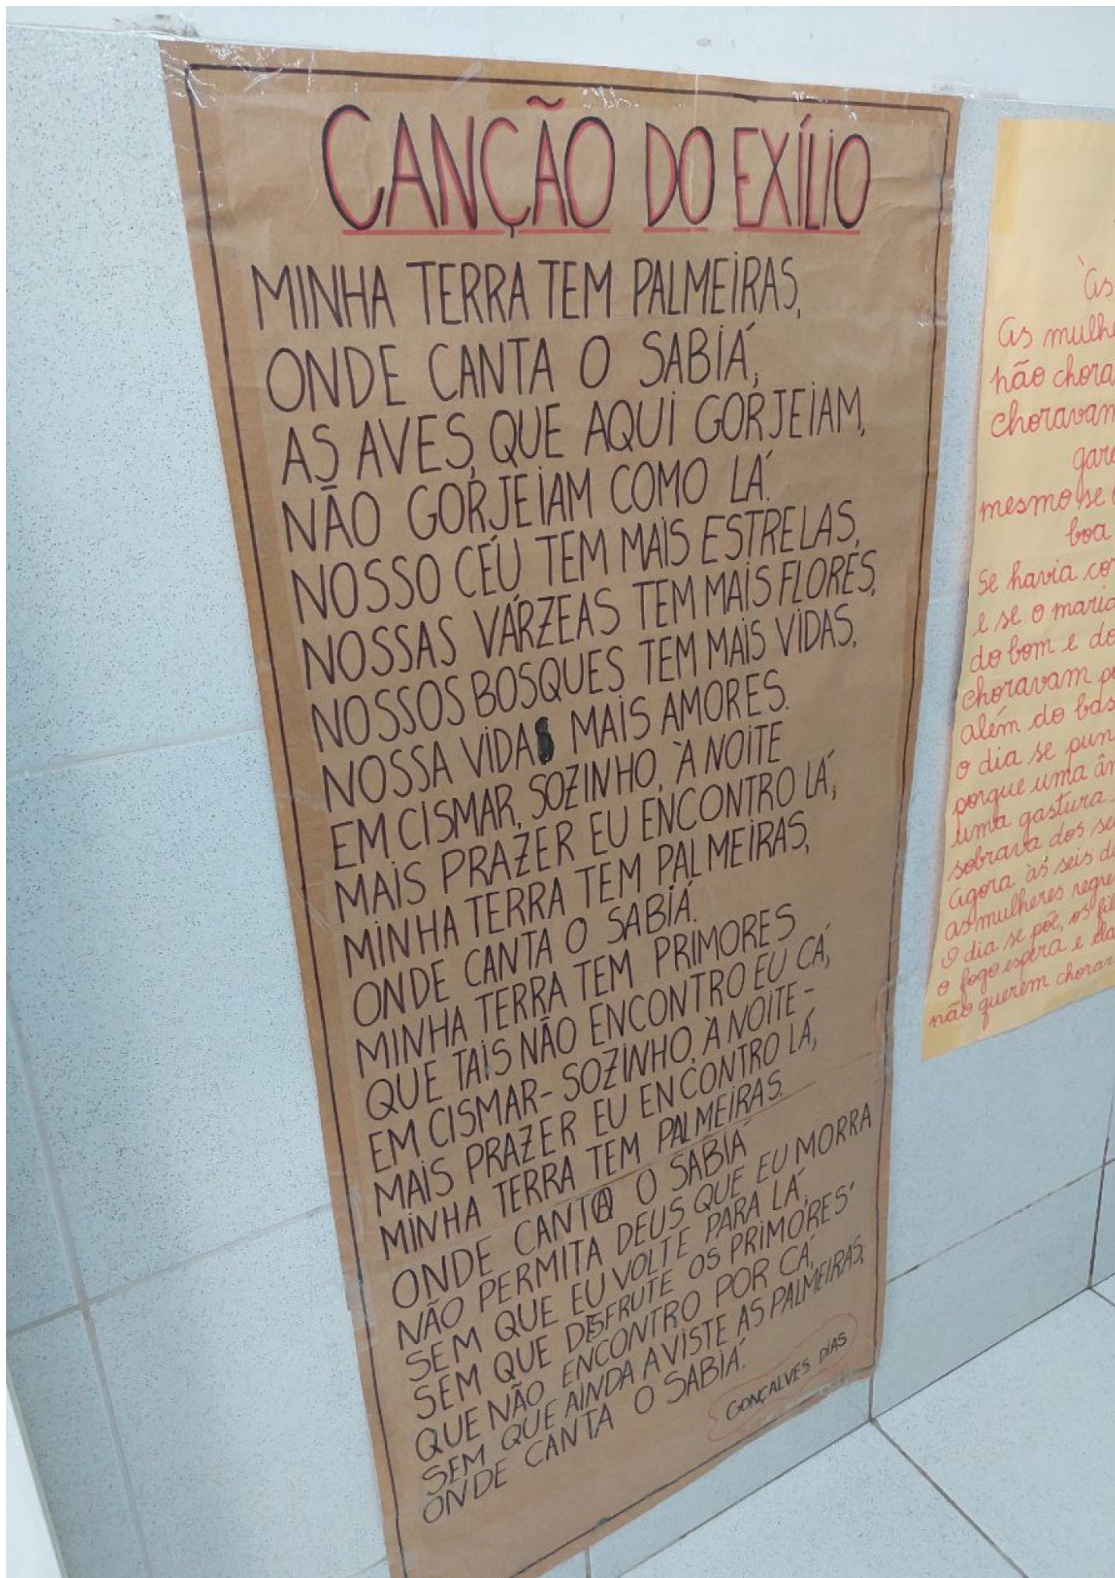 CANÇÃO DO EXÍLIO
MINHA TERRA TEM PALMEIRAS,
ONDE CANTA O SABIÁ,
AS AVES, QUE AQUI GORJEIAM,
NÃO GORJEIAM COMO LÁ.
NOSSO CÉU TEM MAIS ESTRELAS,
NOSSAS VÁRZEAS TEM MAIS FLORES,
NOSSOS BOSQUES TEM MAIS VIDAS,
NOSSA VIDA MAIS AMORES.
EM CISMAR, SOZINHO, À NOITE
MAIS PRAZER EU ENCONTRO LÁ;
MINHA TERRA TEM PALMEIRAS,
ONDE CANTA O SABIÁ.
MINHA TERRA TEM PRIMORES
QUE TAIS NÃO ENCONTRO EU CÁ;
EM CISMAR- SOZINHO, À NOITE -
MAIS PRAZER EU ENCONTRO LÁ,
MINHA TERRA TEM PALMEIRAS.
ONDE CANTA O SABIÁ
NÃO PERMITA DEUS QUE EU MORRA
SEM QUE EU VOLTE PARA LÁ,
SEM QUE DESFRUTE OS PRIMORES
QUE NÃO ENCONTRO POR CÁ,
SEM QUE AINDA AVISTE AS PALMEIRAS,
ONDE CANTA O SABIÁ.
GONÇALVES DIAS
As
As
não
choravam
mesmo se
boa
Se havia
e se o
do bom e
choravam
além do
o dia se
porque uma
uma gastura
sobrava dos
Agora às seis
as mulheres
O dia se põe, os
o fogo espera e
não querem chorar